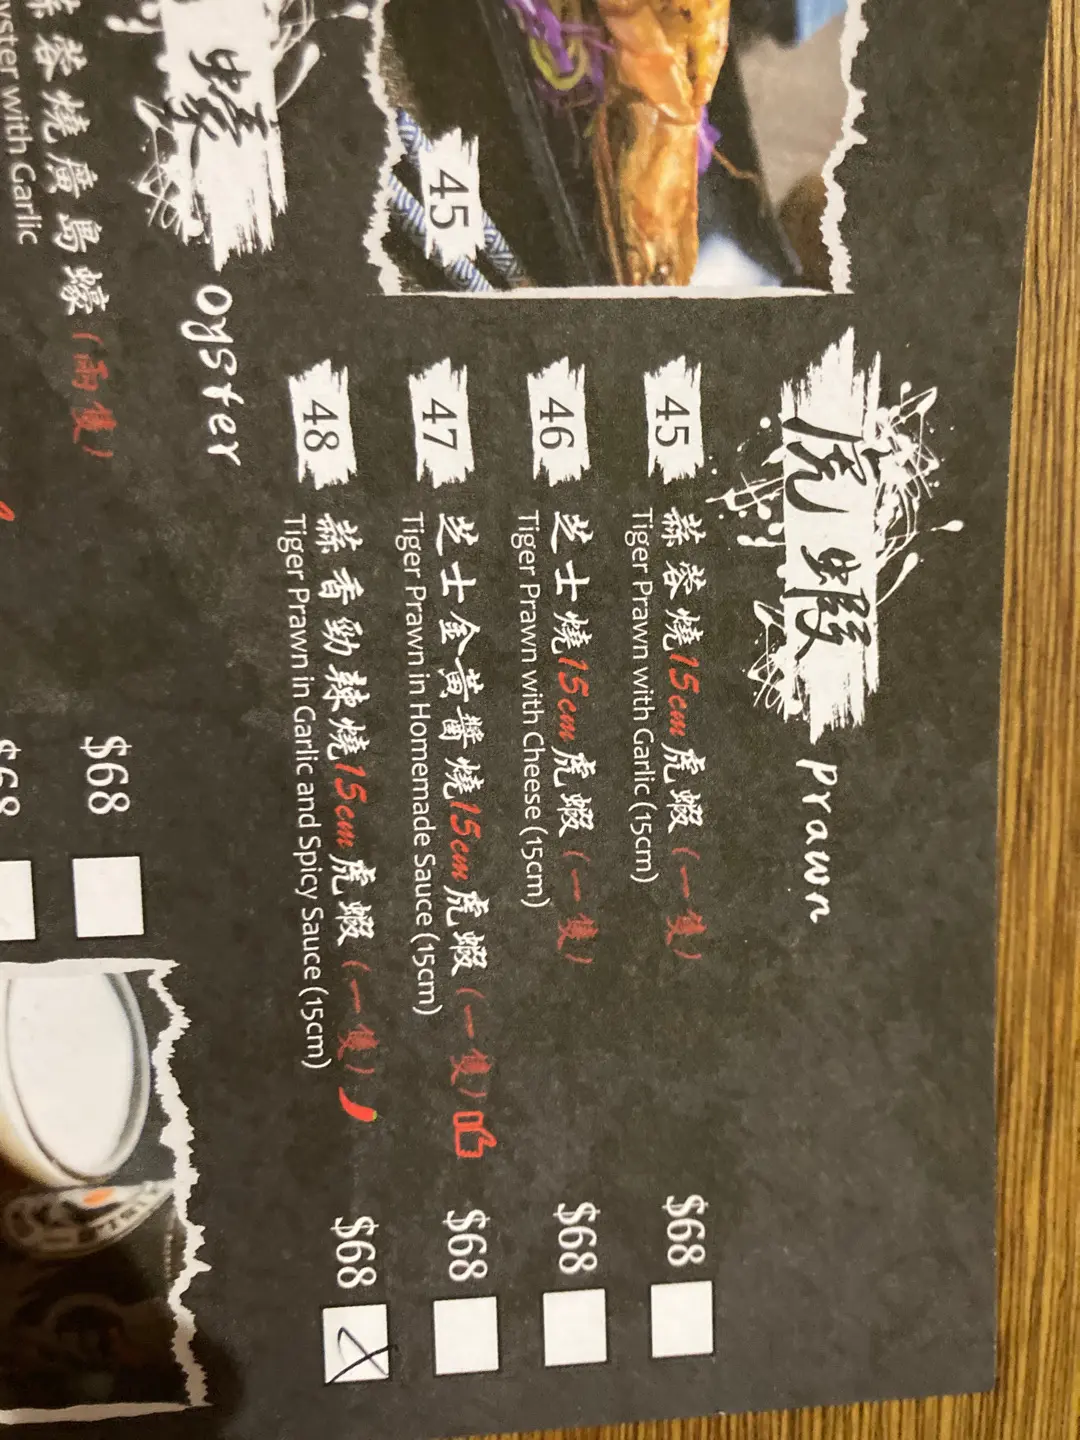 45
虎蝦 Prawn
45 蒜蓉燒15cm虎蝦(一隻) $68
Tiger Prawn with Garlic (15cm)
46 芝士燒15cm虎蝦(一隻) $68
Tiger Prawn with Cheese (15cm)
47 芝士金黃醬燒15cm虎蝦(一隻) $68
Tiger Prawn in Homemade Sauce (15cm)
48 蒜香勁辣燒15cm虎蝦(一隻) $68
Tiger Prawn in Garlic and Spicy Sauce (15cm)
蠔 Oyster
蓉燒廣島蠔(兩隻) $68
with Garlic
$68